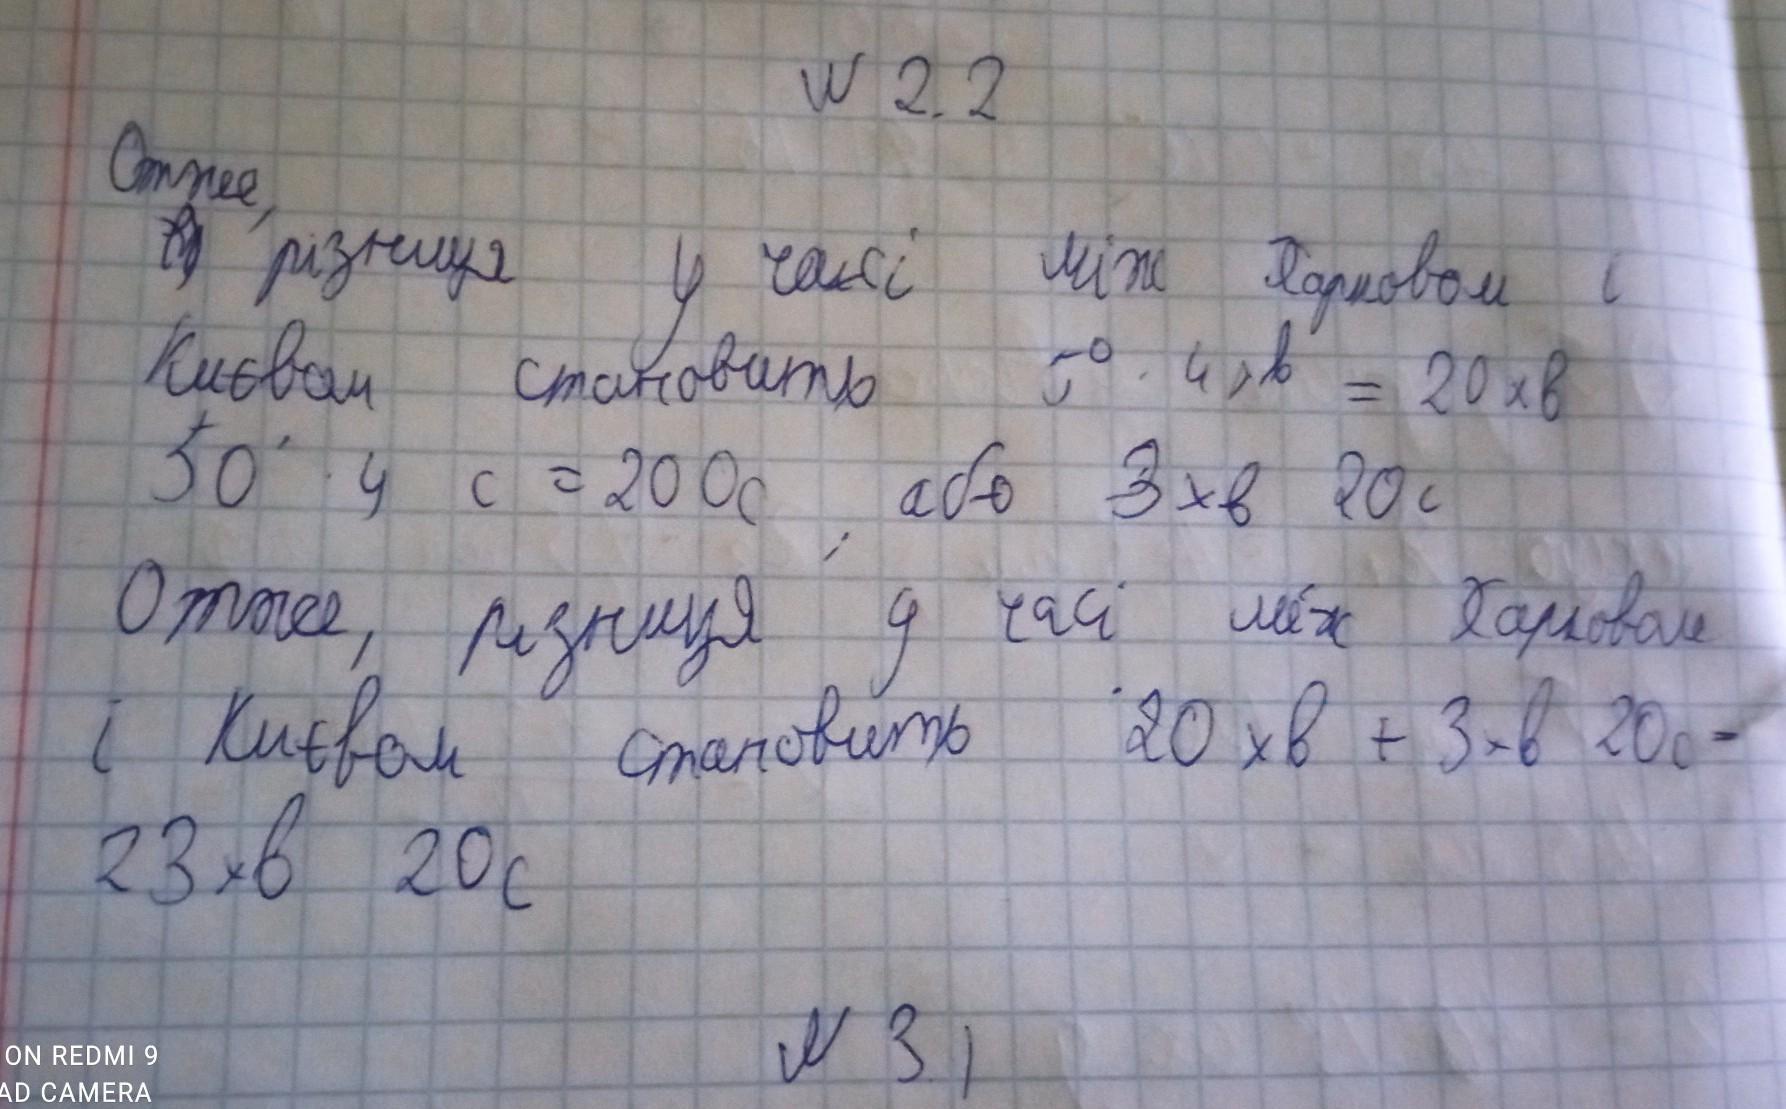 № 2.2
Отже,
різниця у часі між Харковом і
Києвом становить 5° · 4 хв = 20 хв
50' · 4 с = 200с, або 3 хв 20с
Отже, різниця у часі між Харковом
і Києвом становить 20 хв + 3 хв 20с =
23 хв 20с
№ 3.1
ON REDMI 9
AD CAMERA